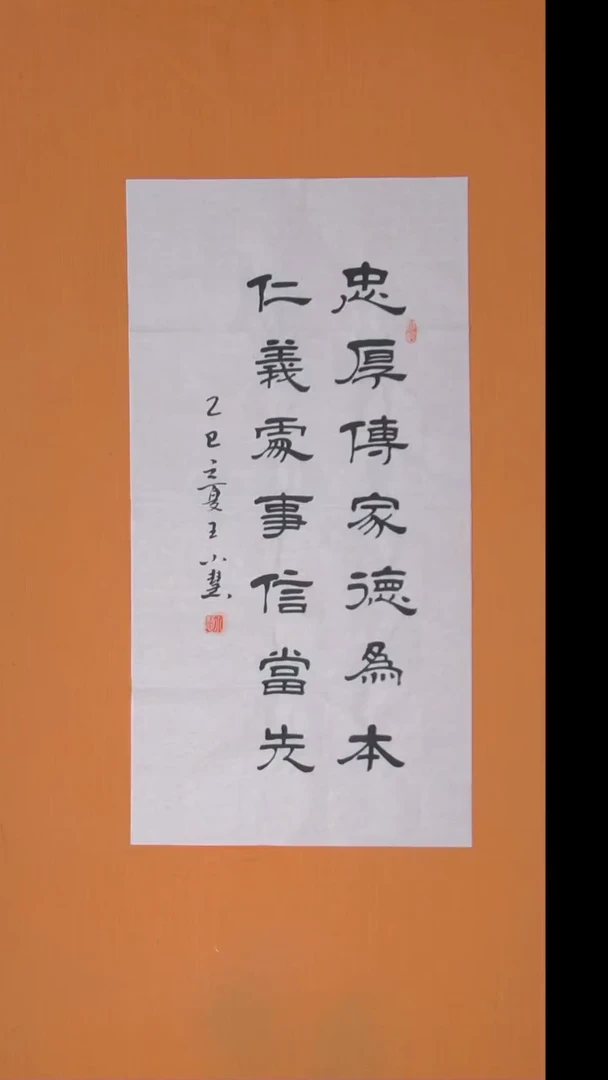 忠厚傳家德為本
仁義處事信當先
乙巳立夏王小慧